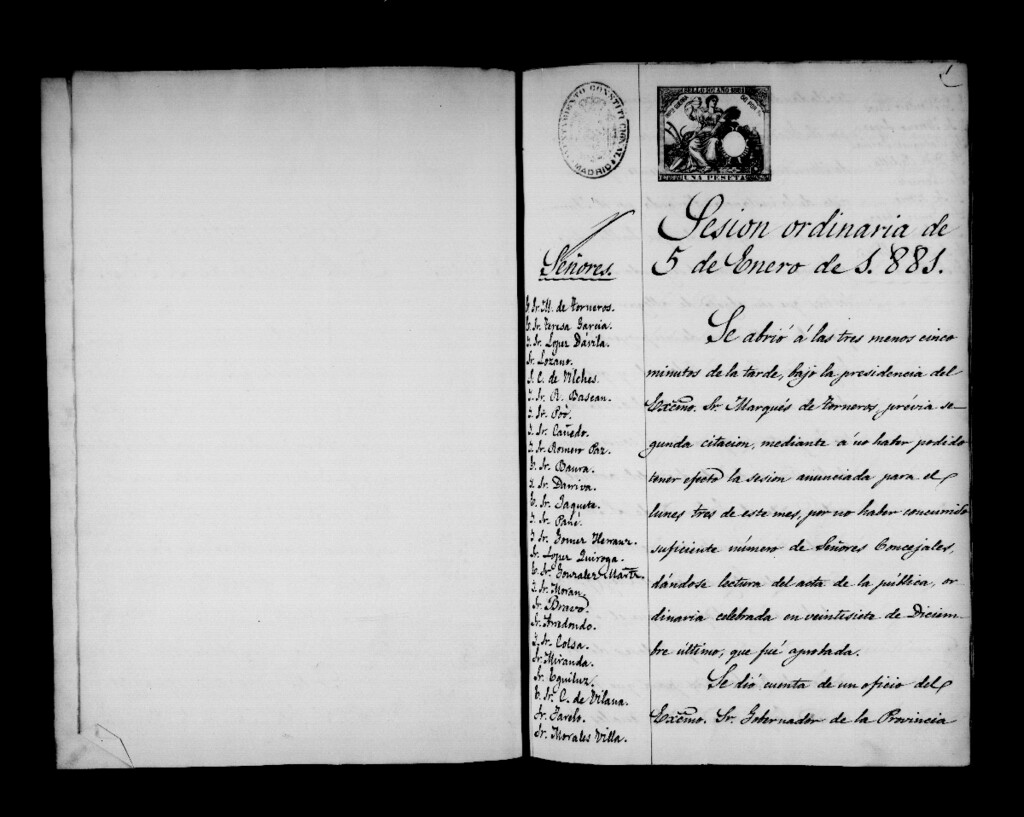 1
AYUNTAMIENTO CONSTITUCIONAL
MADRID
SELLO 10º AÑO 1881
UNA PESETA
Sesion ordinaria de
5 de Enero de 1.881.
Señores.
E. Sr. M. de Torneros.
E. Sr. Teresa Garcia.
I. Sr. Lopez Dávila.
Sr. Lozano.
S. C. de Vilches.
I. Sr. R. Basean.
I. Sr. Poó.
I. Sr. Cañedo.
I. Sr. Romero Paz.
E. Sr. Baura.
I. Sr. Darriva.
E. Sr. Jaquete.
I. Sr. Pané.
I. Sr. Gomez Herranz.
Sr. Lopez Quiroga.
E. Sr. Gonzalez Martz.
I. Sr. Moran.
Sr. Bravo.
Sr. Arredondo.
I. Sr. Colsa.
Sr. Miranda.
Sr. Eguiluz.
E. Sr. C. de Vilana.
Sr. Tarelo.
Sr. Morales Villa.
Se abrió á las tres menos cinco
minutos de la tarde, bajo la presidencia del
Excmo. Sr. Marqués de Torneros, prévia se-
gunda citacion, mediante á no haber podido
tener efecto la sesion anunciada para el
lunes tres de este mes, por no haber concurrido
suficiente número de Señores Concejales,
dándose lectura del acta de la pública, or
dinaria celebrada en veintesiete de Diciem-
bre último, que fué aprobada.
Se dió cuenta de un oficio del
Excmo. Sr. Gobernador de la Provincia